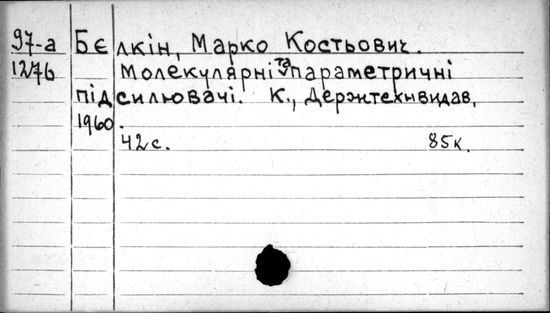 97-а Бєлкін, Марко Костьович.
1276 Молекулярні та параметричні
підсилювачі. К., Держтехнвидав,
1960.
42 с. 85 к.